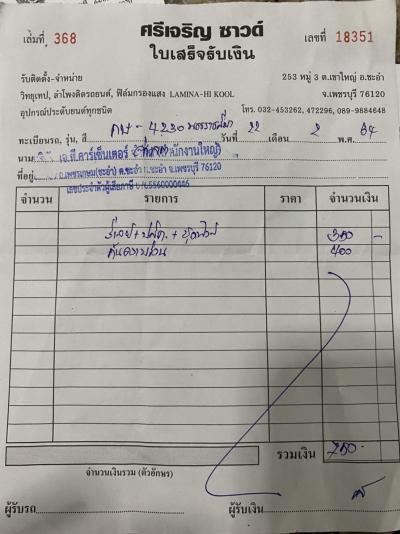 ศรีเจริญ ซาวด์
เล่มที่ 368
ใบเสร็จรับเงิน
เลขที่ 18351
รับติดตั้ง-จำหน่าย
วิทยุเทป, ลำโพงติดรถยนต์, ฟิล์มกรองแสง LAMINA-HI KOOL
อุปกรณ์ประดับยนต์ทุกชนิด
253 หมู่ 3 ต.เขาใหญ่ อ.ชะอำ
จ.เพชรบุรี 76120
โทร. 032-453262, 472296, 089-9884648
ทะเบียนรถ, รุ่น, สี 4230 วันที่ 22 เดือน 2 พ.ศ. 64
นาม เจ.ที.คาร์เซ็นเตอร์ (สำนักงานใหญ่)
ที่อยู่ ถ.เพชรเกษม(ชะอำ) ต.ชะอำ อ.ชะอำ จ.เพชรบุรี 76120
เลขประจำตัวผู้เสียภาษี
จำนวน รายการ ราคา จำนวนเงิน
400
รวมเงิน 750
จำนวนเงินรวม (ตัวอักษร)
ผู้รับรถ ผู้รับเงิน